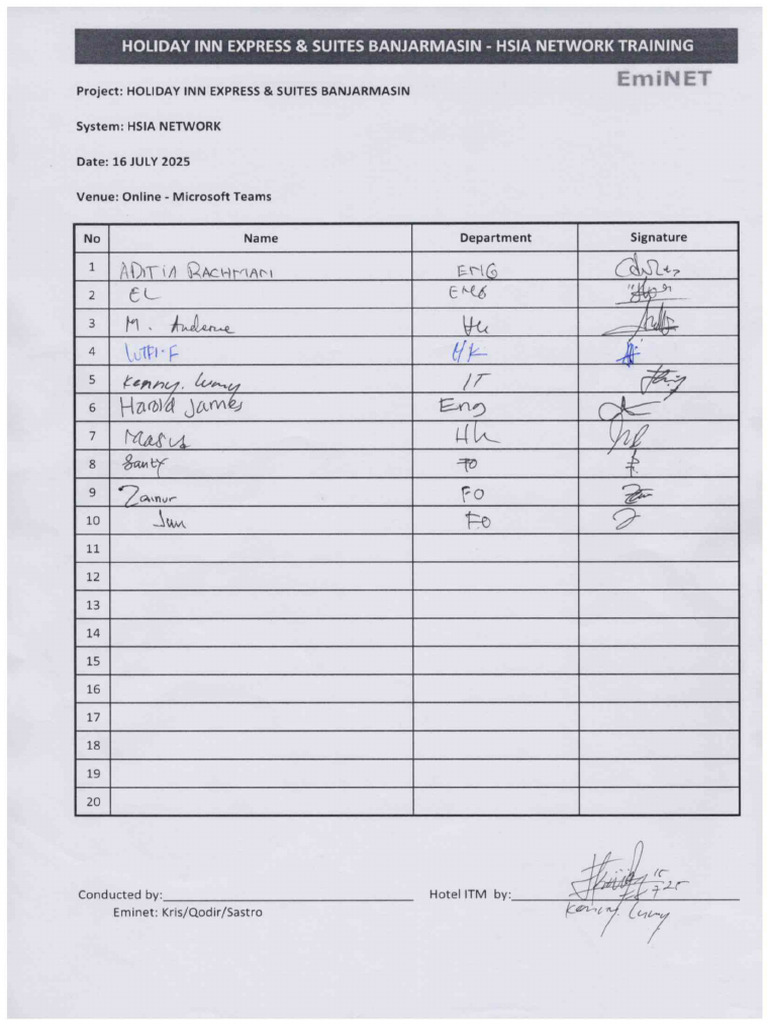 HOLIDAY INN EXPRESS & SUITES BANJARMASIN - HSIA NETWORK TRAINING
EmiNET
Project: HOLIDAY INN EXPRESS & SUITES BANJARMASIN
System: HSIA NETWORK
Date: 16 JULY 2025
Venue: Online - Microsoft Teams
No Name Department Signature
1 ADITIA RACHMAN ENG
2 EL ENG
3 M. HK
4 LUTFI-F HK
5 Kenny. IT
6 Harold James Eng
7 HK
8 Santy FO
9 Zainur FO
10 Jun FO
11
12
13
14
15
16
17
18
19
20
Conducted by: Hotel ITM by:
Eminet: Kris/Qodir/Sastro
Kenny